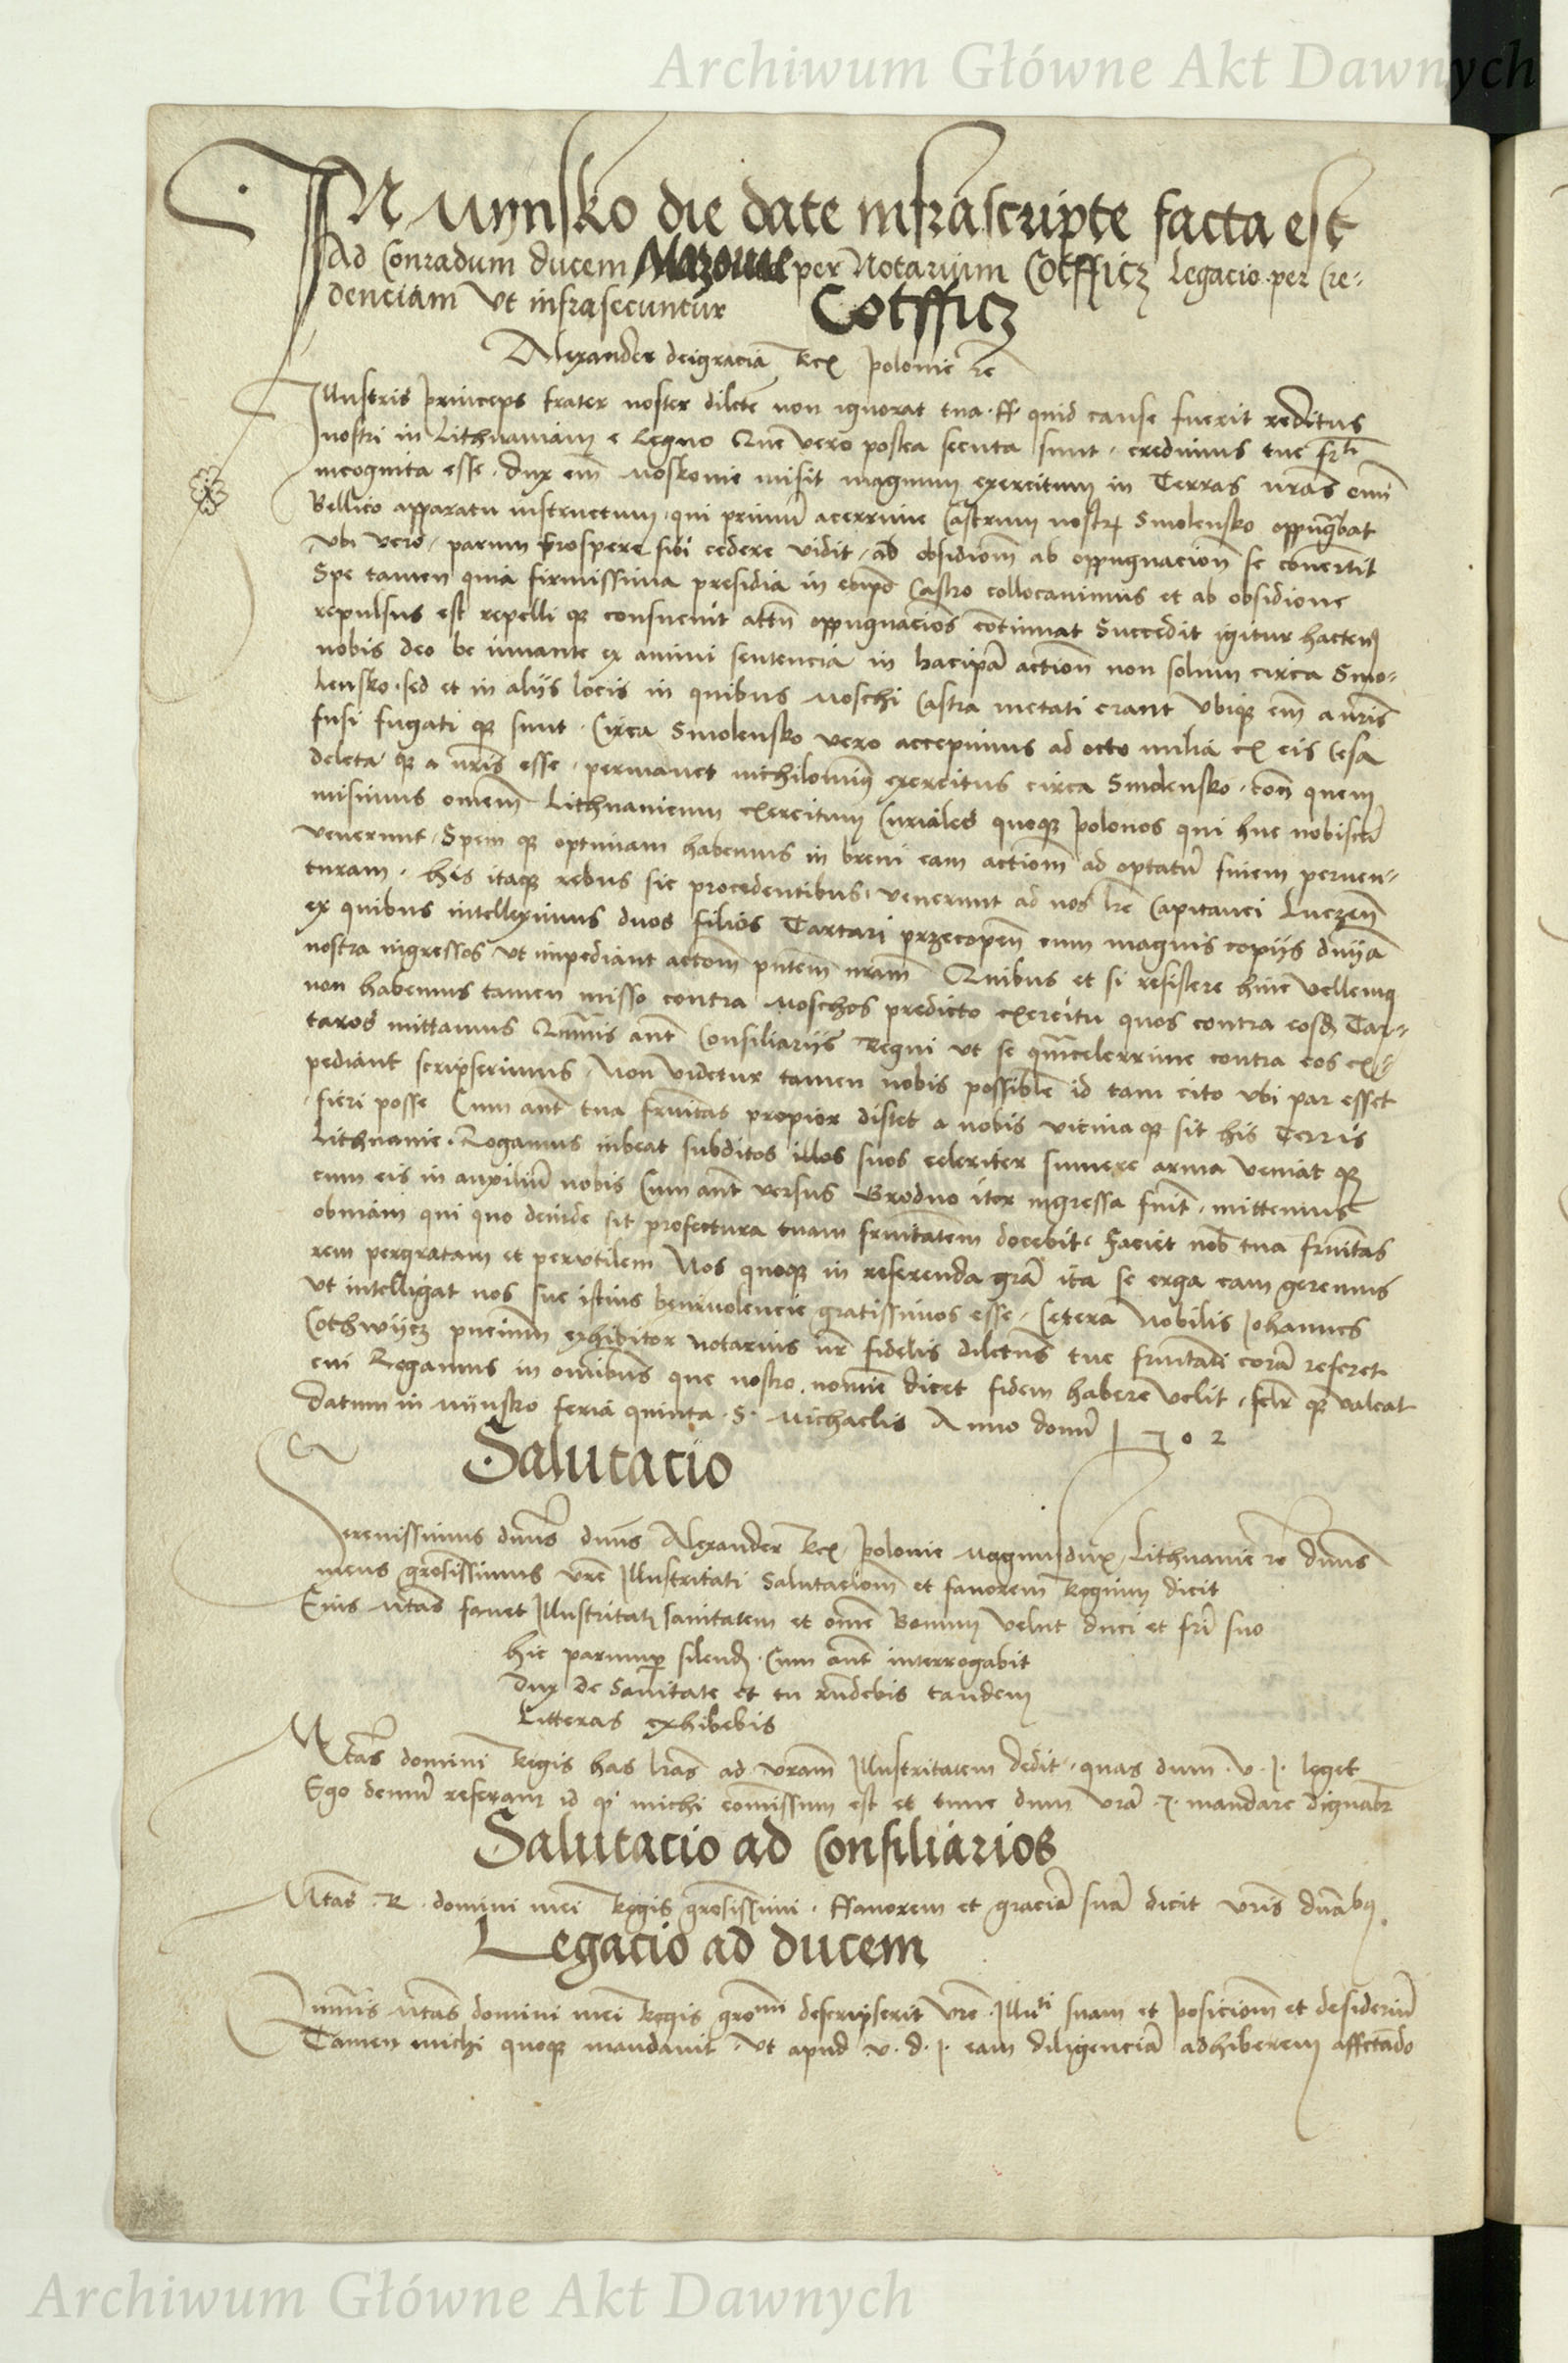 Archiwum Główne Akt Dawnych
IN Mynsko die date infrascripte facta est
Ad Conradum ducem Mazowie per Notarium Cotfficz Legacio per Cre-
denciam Ut infrasecuntur Cotfficz
Alexander dei gracia Rex Polonie etc
Illustris princeps frater noster dilecte non ignorat tua ff quid cause fuerit reditus
nostri in Lithuaniam e Regno Que vero postea secuta sunt credimus tue frti
incognita esse. dux em Moskovie misit magnum exercitum in Terras nras omni
Bellico apparatu instructum qui primum acerrime Castrum nostrum Smolensko oppugnabat
Ubi vero parum prospere sibi cedere vidit ab obsidiom ab oppugnacion se convertit
Spe tamen quia firmissima presidia in eo Castro collocavimus et ab obsidione
repulsus est repelli que consuevit attn oppugnacios continuat Succedit igitur hactens
nobis deo be iuvante ex animi sentencia in hac actiom non solum circa Smo-
lensko sed et in alijs locis in quibus Moschi Castra metati erant Ubique em a nris
fusi fugati que sunt. Circa Smolensko vero accepimus ad octo milia ex eis Cesa
deleta que a nris esse. permanet nichilominus exercitus circa Smolensko. quem
misimus omnem Lithuanicum exercitum Curiales quoque Polonos qui huc nobiscum
venerunt. Spem que optimam habemus in brevi eam actiom ad optatum finem perven-
turam. his itaque rebus sic procedentibus venerunt ad nos lre Capitanei Luczen
ex quibus intelleximus duos filios Tartari przecopen cum magnis copijs dnia
nostra ingressos ut impediant actom pntem nram Quibus et si resistere hinc vellemus
non habemus tamen misso contra Moschos predicto exercitu quos contra eosd Tar-
taros mittamus Qumvis aut Consiliarijs Regni ut se qumcelerrime contra eos ex-
pediant scripserimus. Non videtur tamen nobis possibile id tam cito ubi par esset
fieri posse Cum aut tua frnitas propior distet a nobis vicina que sit his Terris
Lithuanie. Rogamus iubeat subditos illos suos celeriter sumere arma veniat que
cum eis in auxilium nobis Cum aut versus Grodno iter ingressa fuit. mittemus
obviam qui quo deinde sit profectura tuam frnitatem docebit. Faciet nob tua frnitas
rem pergratam et perutilem Nos quoque in referenda gra ita se erga eam geremus
Ut intelligat nos sue istius benivolencie gratissimos esse. Cetera Nobilis Johannes
Cothwijcz pncium exhibitor notarius nr fidelis dilectus tue frnitati coram referet
cui Rogamus in omnibus que nostro nomine dicet fidem habere velit. felr que valeat
datum in Mijnsko feria quinta S. Michaelis Anno domi 1502
Salutacio
Serenissimus dnus dnus Alexander Rex Polonie Magnus dux Lithuanie etc dnus
meus grosissimus vre Illustritati Salutaciom et favorem Regium dicit
Eius Mtas favet Illustritati sanitatem et ome Bonum velut duci et fri suo
hic parumper silend. Cum aut interrogabit
dux de sanitate et tu rndebis tandem
Litteras exhibebis
Mtas domini Regis has lras ad vram Illustritatem dedit. quas dum v. I. leget
Ego demum referam id q michi comissum est et tunc dum vra I. mandare dignabr
Salutacio ad Consiliarios
Mtas R. domini mei Regis grosissimi. ffavorem et gracia sua dicit vris dnabus
Legacio ad ducem
Qumvis Mtas domini mei Regis gromi descripserit vre Illuti suam et posiciom et desiderium
Tamen michi quoque mandavit. Ut apud v. d. I. eam diligencia adhiberem affectando
Archiwum Główne Akt Dawnych